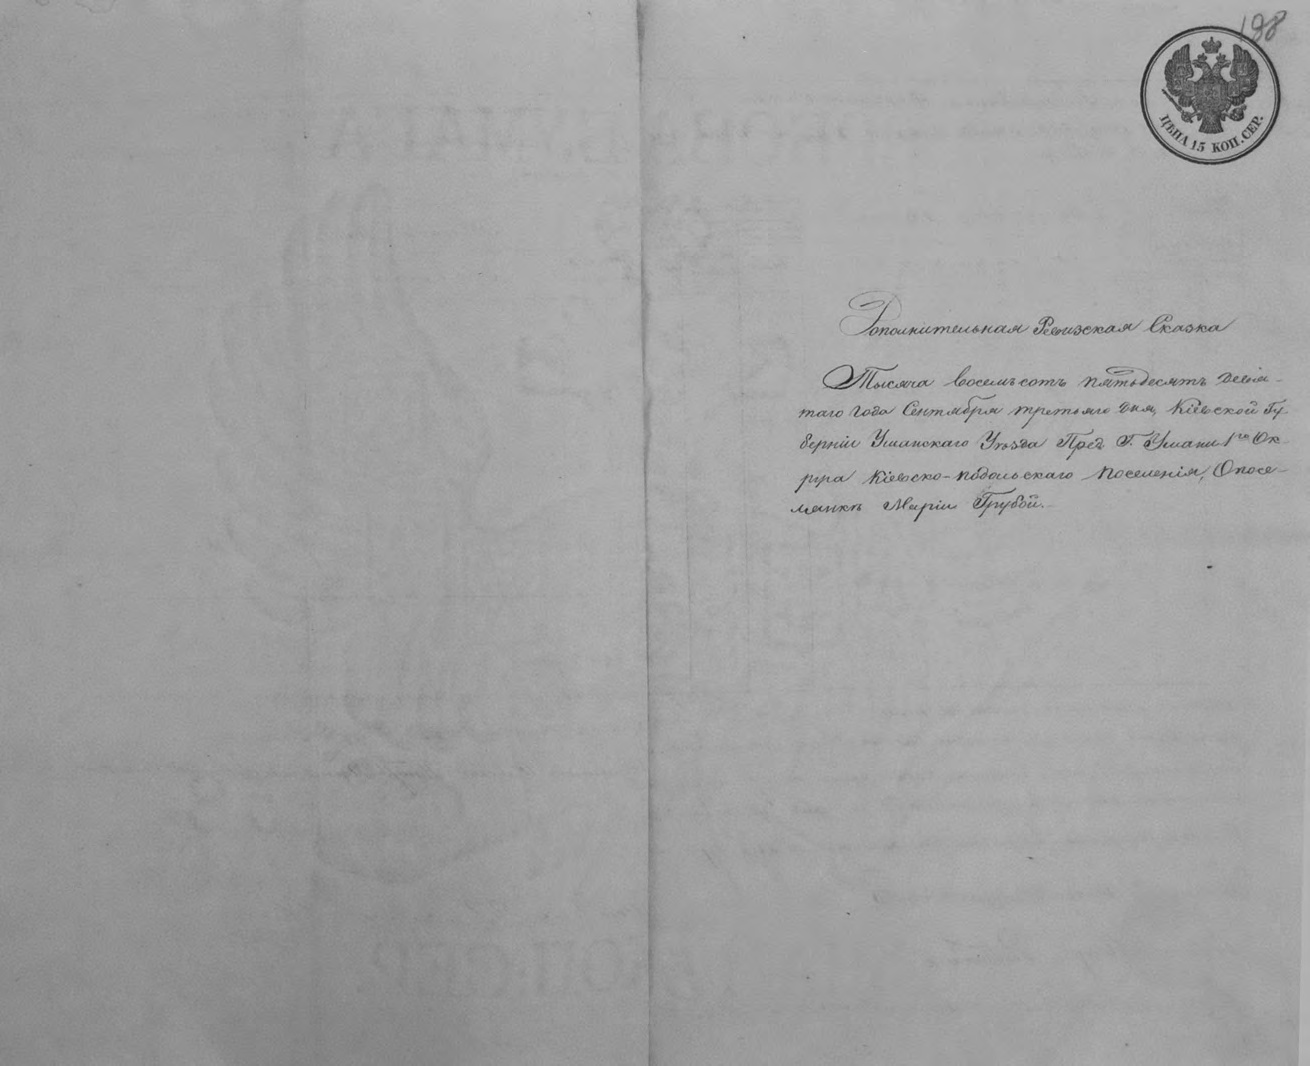 198
ЦѢНА 15 КОП. СЕР.
Дополнительная Ревизская Сказка
Тысяча восемьсотъ пятьдесятъ девя-
таго года Сентября третьяго дня, Кіевской Гу-
берніи Уманскаго Уѣзда Пред. Г. Умани 1го Ок-
руга Кіевско-Подольскаго поселенія, О посе-
лянкѣ Маріи Грубой.